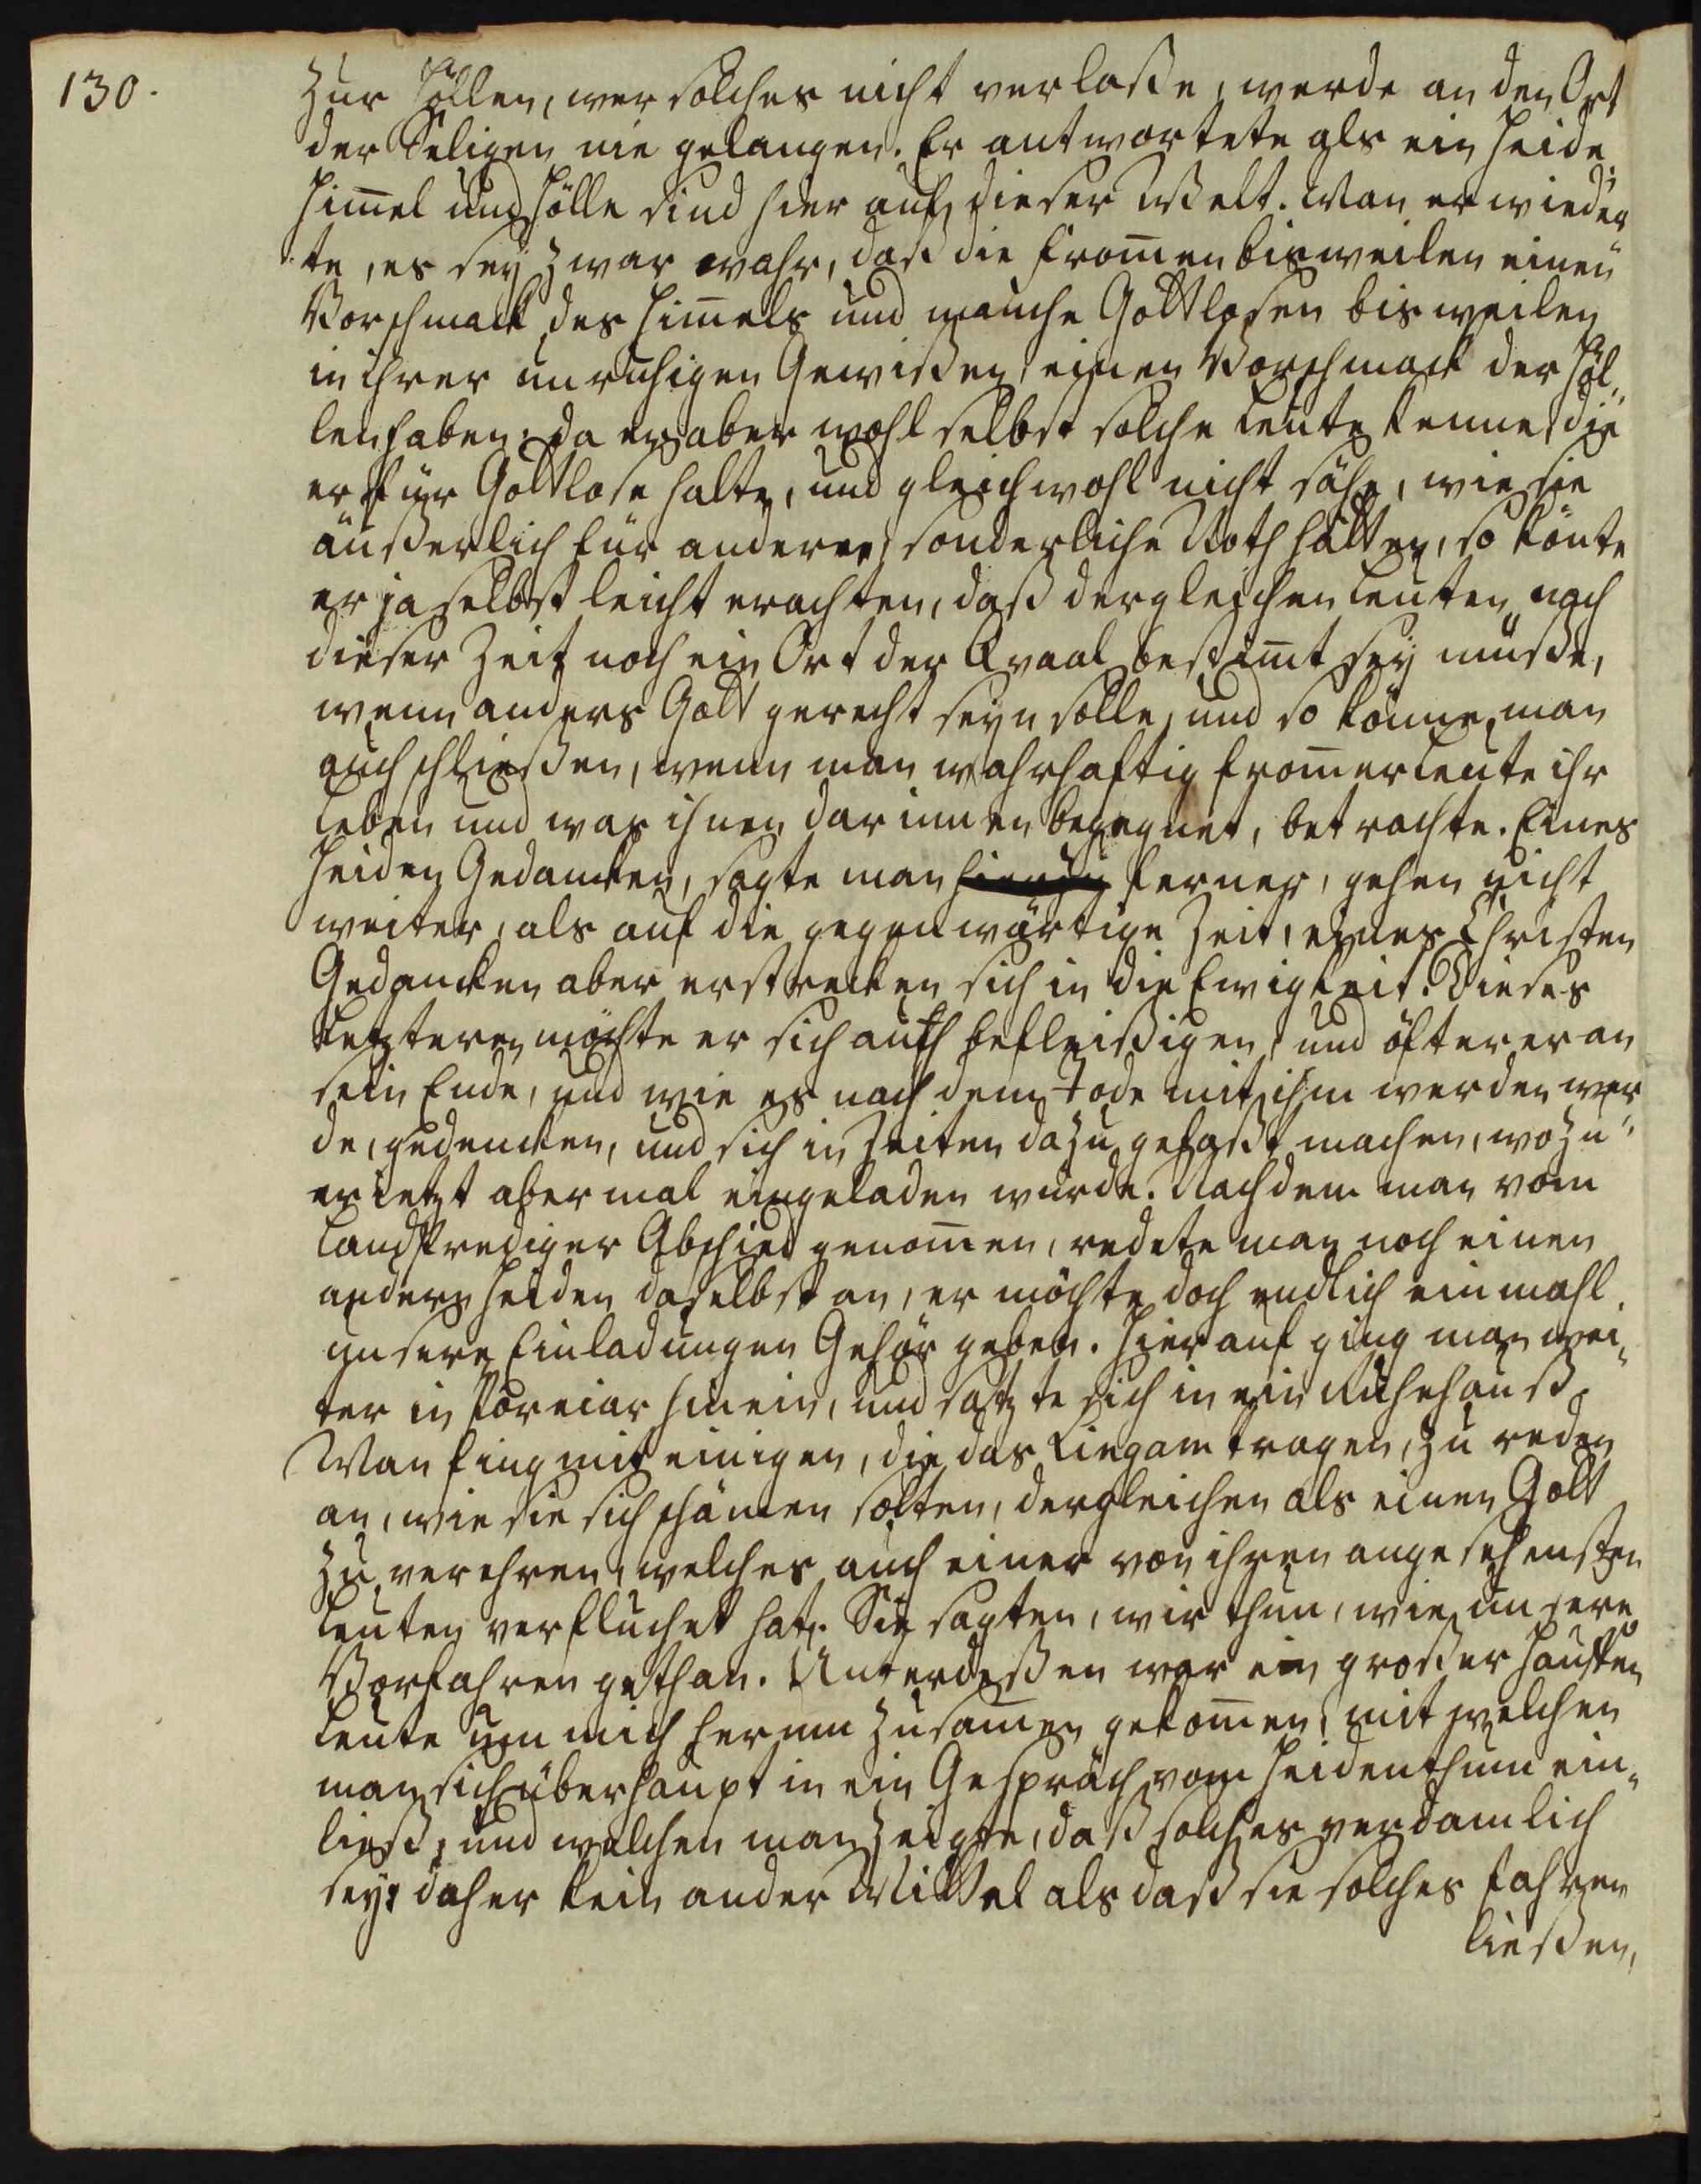 130.
zur Höllen, wer solches nicht verlaße, werde an den Ort
der Seligen nie gelangen. Er antwortete als ein Heide:
Him̅el und Hölle sind hier auf dieser Welt. Man erwieder
te, es seÿ zwar wahr, daß die From̅en bisweilen einen
Vorschmack des Him̅els und manche Gottlosen bisweilen
in ihrer unruhigen Gewißen, einen Vorschmack der Höl-
len haben; da er aber wohl selbst solche Leute kenne, die
er für Gottlose halte, und gleichwohl nicht sähe, wie sie
äußerlich für andern, sonderliche Noth hätten, so könte
er ja selbst leicht erachten, daß dergleichen Leuten nach
dieser Zeit noch ein Ort der Qvaal bestim̅t seÿ müße,
wenn anders Gott gerecht seyn solle, und so könne man
auch schließen, wenn man wahrhaftig from̅er Leute ihr
Leben und was ihnen darinnen begegnet, betrachte. Eines
Heiden Gedancken, sagte man ferner, gehen nicht
weiter, als auf die gegenwärtige Zeit, eines Christen
Gedancken aber erstrecken sich in die Ewigkeit. Dieses
letzteren möchte er sich auch befleißigen, und öfterer an
sein Ende, und wie es nach dem Tode mit ihm werden wer
de, gedencken, und sich in Zeiten dazu gefaßt machen, wozu
er jetzt abermal eingeladen wurde. Nachdem man vom
Landprediger Abschied genom̅en, redete man noch einen
andern Heiden daselbst an, er möchte doch endlich einmahl
unsern Einladungen Gehör geben. Hierauf ging man wei-
ter in Poreiar hinein, und satzte sich in ein Ruhehauß.
Man fing mit einigen, die das Lingam tragen, zu reden
an, wie sie sich schämen solten, dergleichen als einen Gott
zu verehren, welches auch einer von ihren angesehensten
Leuten verfluchet hat. Sie sagten, wir thun, wie unsere
Vorfahren gethan. Unterdeßen war ein großer Hauffen
Leute um mich herum zusam̅en gekom̅en, mit welchen
man sich überhaupt in ein Gespräch vom Heidenthum ein-
ließ, und welchen man zeigte, daß solches verdamlich
seÿ; daher kein ander Mittel als daß sie solches fahren
ließen,